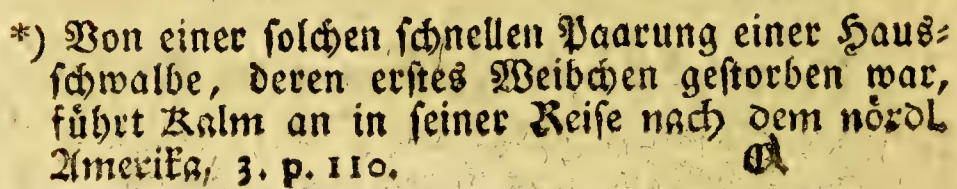 *) Von einer ſolchen ſchnellen Paarung einer Haus⸗
ſchwalbe, deren erſtes Weibchen geſtorben war,
führt Kalm an in ſeiner Reiſe nach dem nördl.
Amerika, 3. p. 110.